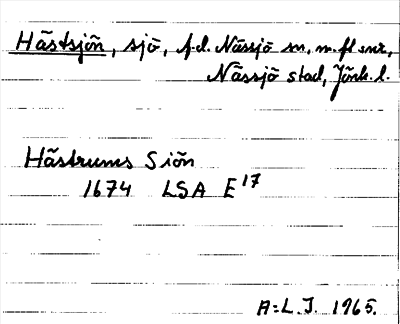 Hästsjön, sjö, f.d. Nässjö sn, m.fl. snr,
Nässjö stad, Jönk. l.
Hästrums Siön
1674 LSA E17
A:L.J. 1965.